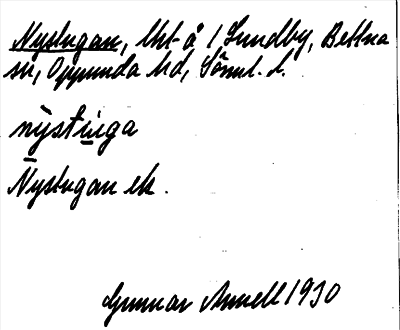 Nystugan, lht å 1 Sundby, Bettna
sn, Oppunda hd, Sörml. l.
nỳstu̲ga
Nystugan ek.
Gunnar Annell 1930